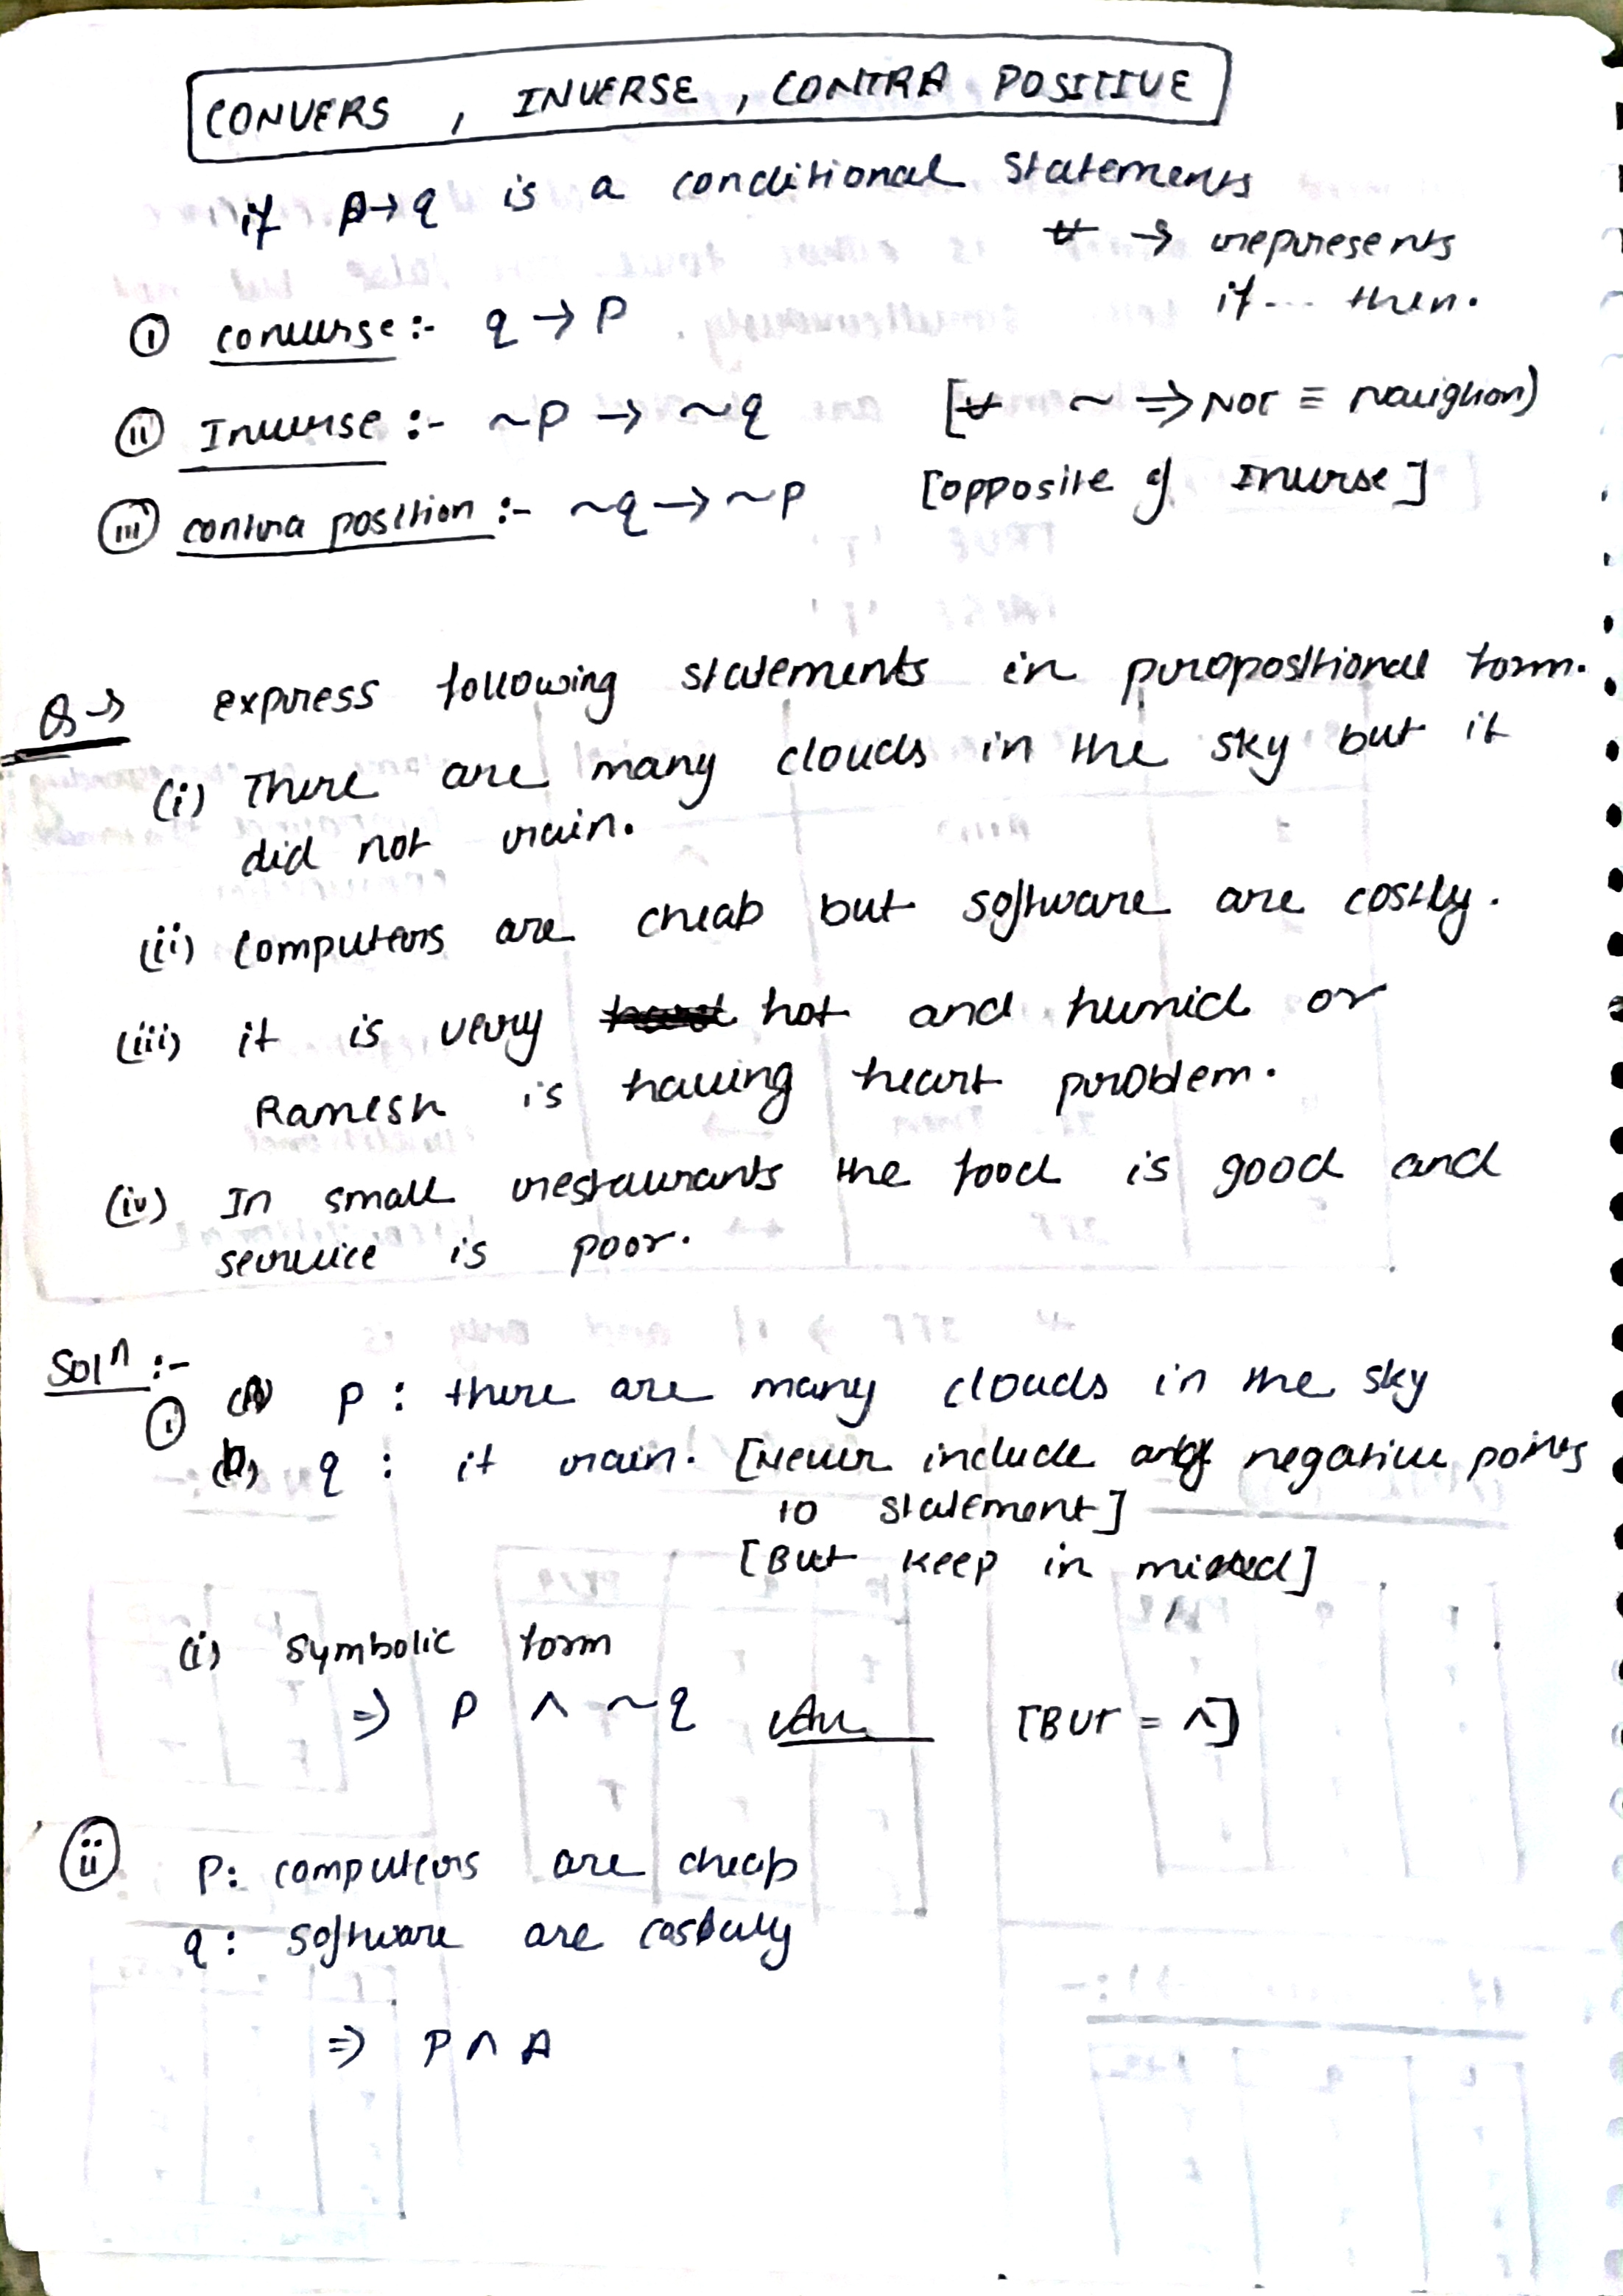 CONVERS , INVERSE , CONTRA POSITIVE
if p→q is a conditional statements
→ represents
if --- then.
(i) converse :- q → p
(ii) Inverse :- ~p → ~q [ ~ ⇒ NOT ≡ )
(iii) contra position :- ~q → ~p [opposite of Inverse]
Q→ express following statements in propositional form.
(i) There are many clouds in the sky but it
did not rain.
(ii) computers are cheap but software are costly.
(iii) it is very hot and humid or
Ramesh is having heart problem.
(iv) In small restaurants the food is good and
service is poor.
Solⁿ :-
(i) (a) p : there are many clouds in the sky
(b) q : it rain. [Never include any negative points
to statement]
[But keep in mind]
(i) symbolic form
⇒ p ∧ ~q Ans [BUT = ∧]
(ii) p: computers are cheap
q: software are
⇒ P ∧ A